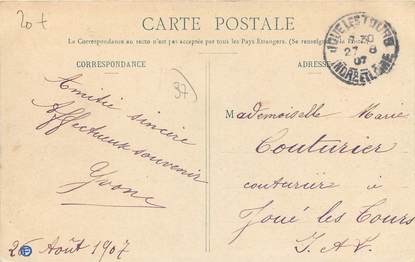 20 t
CARTE POSTALE
La Correspondance au recto n'est pas acceptée par tous les Pays Etrangers. (Se renseigner
CORRESPONDANCE
ADRESSE
JOUE LES TOURS
27 8
07
INDRE ET LOIRE
37
Amitié sincère
Affectueux souvenir
Yvone
26 Août 1907
Mademoiselle Marie
Couturier
couturière à
Joué les Tours
I. & L.